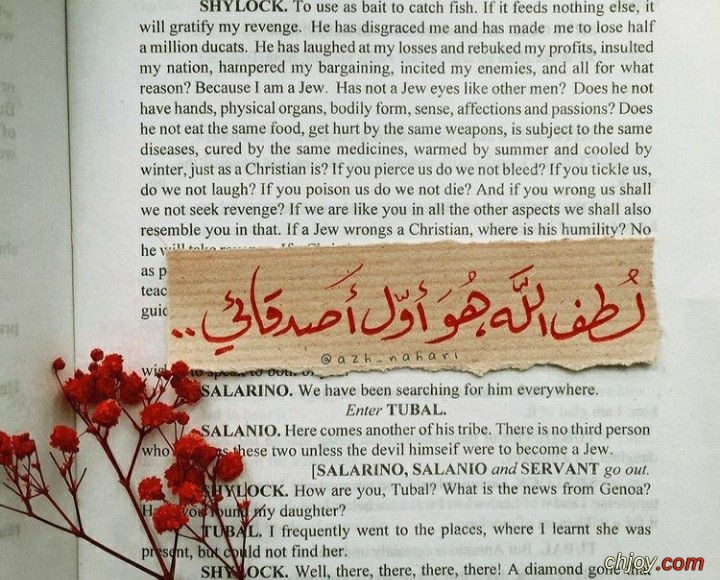 SHYLOCK. To use as bait to catch fish. If it feeds nothing else, it
will gratify my revenge. He has disgraced me and has made me to lose half
a million ducats. He has laughed at my losses and rebuked my profits, insulted
my nation, hampered my bargaining, incited my enemies, and all for what
reason? Because I am a Jew. Has not a Jew eyes like other men? Does he not
have hands, physical organs, bodily form, sense, affections and passions? Does
he not eat the same food, get hurt by the same weapons, is subject to the same
diseases, cured by the same medicines, warmed by summer and cooled by
winter, just as a Christian is? If you pierce us do we not bleed? If you tickle us,
do we not laugh? If you poison us do we not die? And if you wrong us shall
we not seek revenge? If we are like you in all the other aspects we shall also
resemble you in that. If a Jew wrongs a Christian, where is his humility? No
he will take
as p
teac
guid
لُطف اللَّه هُوَ أوّل أصدقائي..
@azh_nahari
to speak to both of
SALARINO. We have been searching for him everywhere.
Enter TUBAL.
SALANIO. Here comes another of his tribe. There is no third person
who these two unless the devil himseif were to become a Jew.
[SALARINO, SALANIO and SERVANT go out.
SHYLOCK. How are you, Tubal? What is the news from Genoa?
you found my daughter?
TUBAL. I frequently went to the places, where I learnt she was
present, but could not find her.
SHYLOCK. Well, there, there, there, there! A diamond gone that
chjoy.com